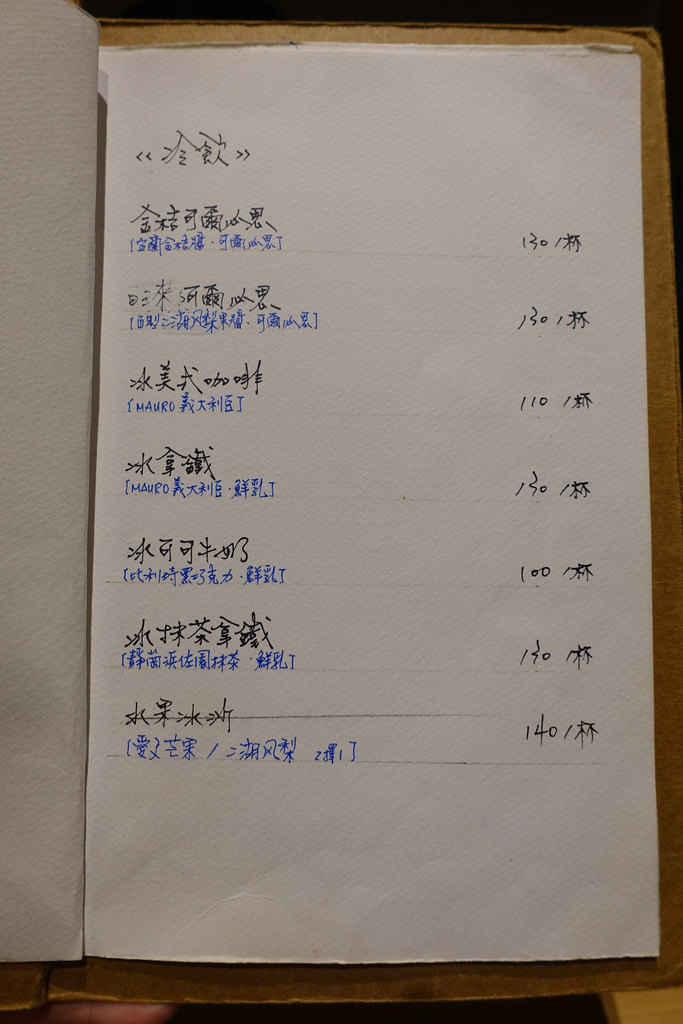 <<冷飲>>
金桔可爾必思
[宜蘭金桔醬·可爾必思]
130/杯
旺來可爾必思
[自製二湖风梨果醬·可爾必思]
130/杯
冰美式咖啡
[MAURO義大利豆]
110/杯
冰拿鐵
[MAURO義大利豆·鮮乳]
130/杯
冰可可牛奶
[比利時黑巧克力·鮮乳]
100/杯
冰抹茶拿鐵
[靜岡浜佐園抹茶·鮮乳]
130/杯
水果冰沙
[愛文芒果/二湖风梨 2擇1]
140/杯